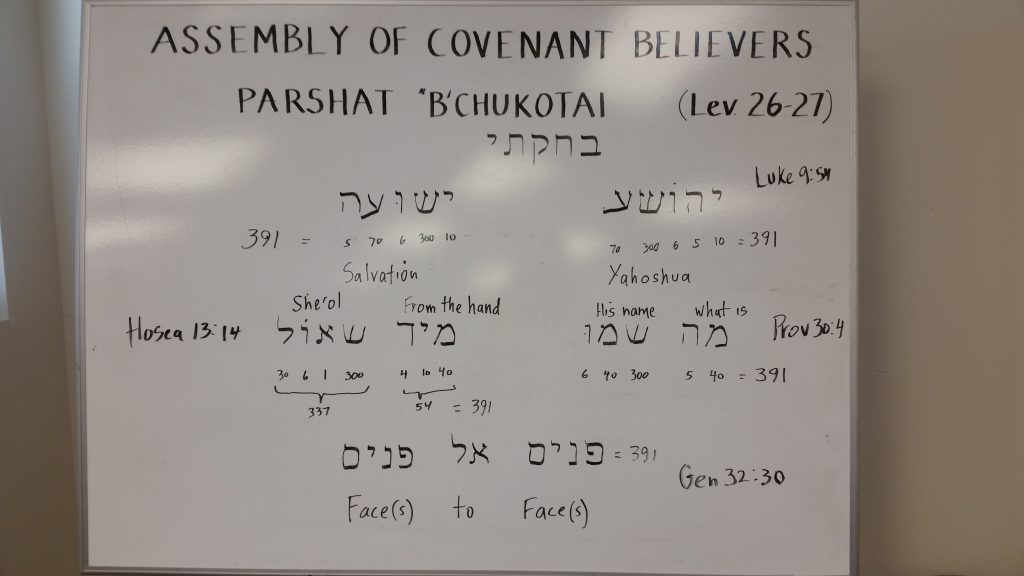 ASSEMBLY OF COVENANT BELIEVERS
PARSHAT "B'CHUKOTAI (Lev. 26-27)
בחקתי
Luke 9:54
ישועה יהושע
391 = 5 70 6 300 10
70 300 6 5 10 = 391
Salvation Yahoshua
She'ol From the hand His name What is
Hosea 13:14 מיד שאול מה שמו Prov 30:4
30 6 1 300 4 10 40 6 40 300 5 40 = 391
337 54 = 391
פנים אל פנים = 391
Gen 32:30
Face(s) to Face(s)